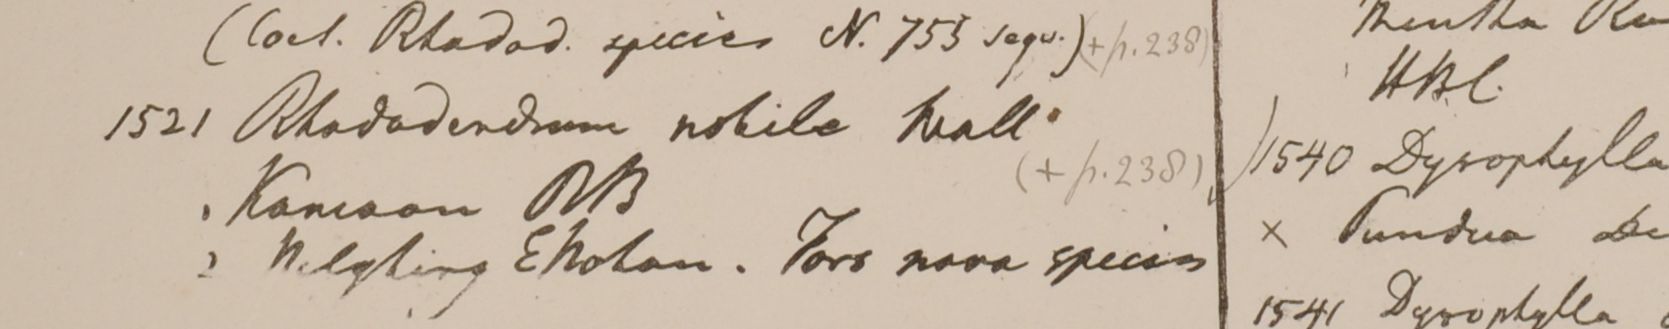 (Coel. Rhadod. species N. 753 sequ.) (+ p. 238)
1521 Rhododendrum nobile Wall.
(+ p. 238)
1 Kamaon RB
2 Nelghiry ENotan. Fors nova species
Mentha
HBC.
1540 Dysophylla
× Pundua De
1541 Dysophylla